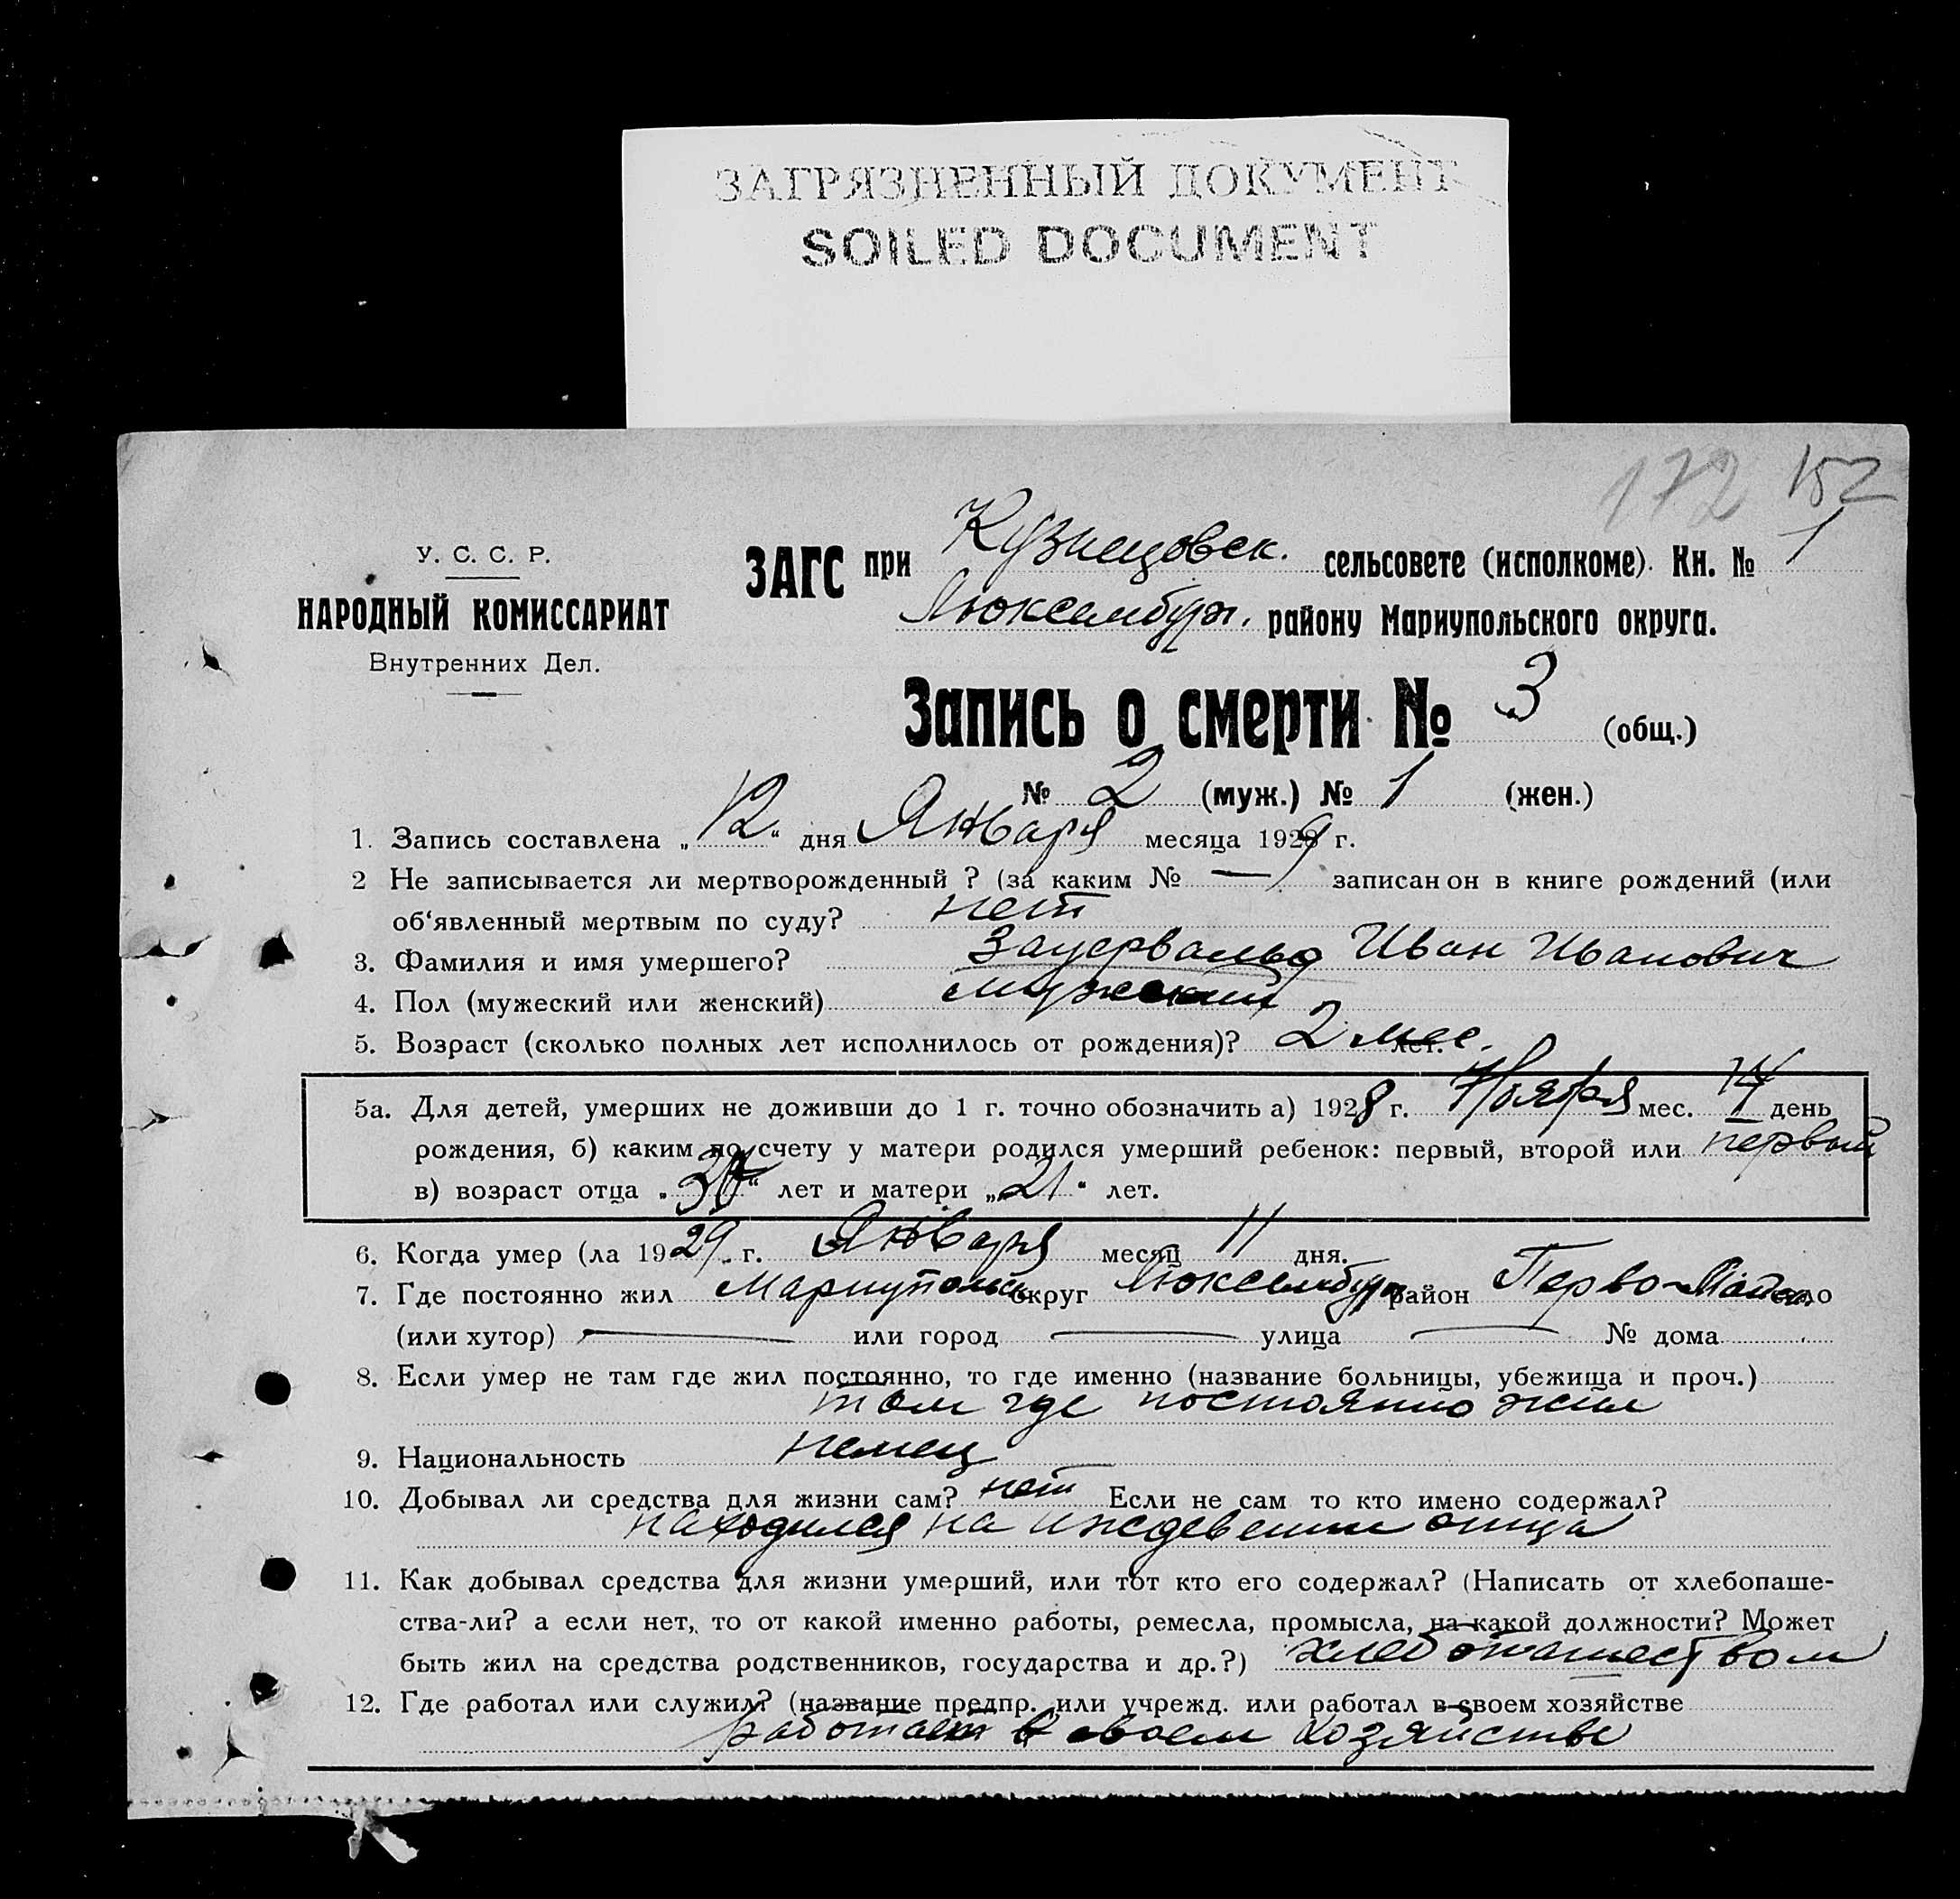 ЗАГРЯЗНЕННЫЙ ДОКУМЕНТ
SOILED DOCUMENT
172 152
У. С. С. Р.
НАРОДНЫЙ КОМИССАРИАТ
Внутренних Дел.
ЗАГС при Кузнецовск. сельсовете (исполкоме). Кн. № 1
Люксембург. району Мариупольского округа.
Запись о смерти № 3 (общ.)
№ 2 (муж.) № 1 (жен.)
1. Запись составлена „12“ дня Января месяца 1929 г.
2 Не записывается ли мертворожденный ? (за каким № — записан он в книге рождений (или
об‘явленный мертвым по суду? нет
3. Фамилия и имя умершего? Зауервальд Иван Иванович
4. Пол (мужеский или женский) мужский
5. Возраст (сколько полных лет исполнилось от рождения)? 2 мес.
5а. Для детей, умерших не доживши до 1 г. точно обозначить а) 1928 г. Ноября мес. день
рождения, б) каким по счету у матери родился умерший ребенок: первый, второй или первый
в) возраст отца лет и матери „21“ лет.
6. Когда умер (ла 1929 г. Января месяц 11 дня.
7. Где постоянно жил Мариуполь округ Люксембург район Перво-Майск село
(или хутор) — или город — улица — № дома
8. Если умер не там где жил постоянно, то где именно (название больницы, убежища и проч.)
там где постоянно жил
9. Национальность немец
10. Добывал ли средства для жизни сам? нет Если не сам то кто имено содержал?
находился на иждевении отца
11. Как добывал средства для жизни умерший, или тот кто его содержал? (Написать от хлебопаше-
ства-ли? а если нет, то от какой именно работы, ремесла, промысла, на какой должности? Может
быть жил на средства родственников, государства и др.?) хлебопашеством
12. Где работал или служил? (название предпр. или учрежд. или работал в своем хозяйстве
работает в своем хозяйстве